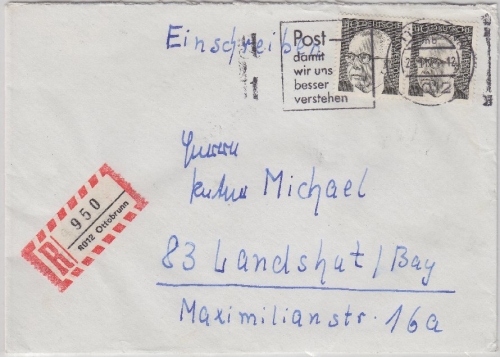 Einschreiben
Post
damit
wir uns
besser
verstehen
R
950
8012 Ottobrunn
Herrn
Michael
83 Landshut/Bay
Maximilianstr. 16a